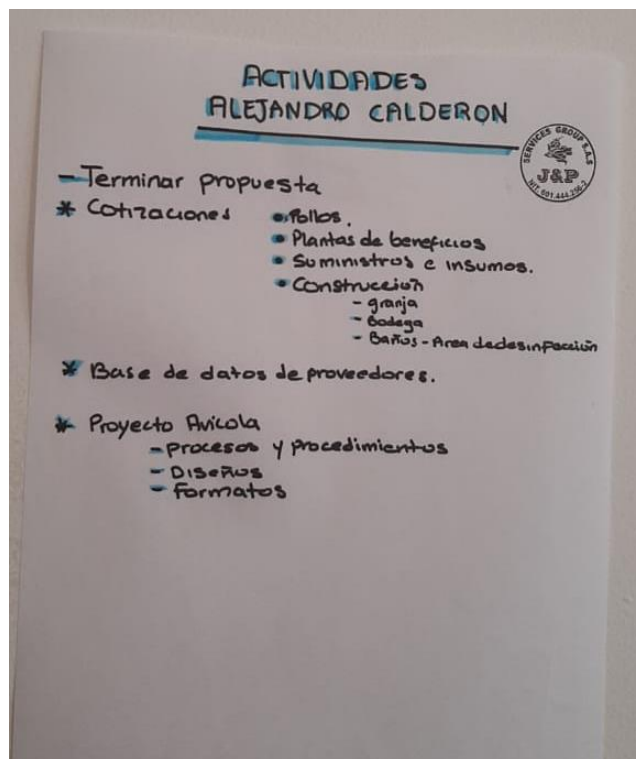 ACTIVIDADES
ALEJANDRO CALDERON
SERVICES GROUP S.A.S
J&P
- Terminar propuesta
* Cotizaciones • Pollos.
• Plantas de beneficios
• Suministros e insumos.
• Construccion
- granja
- Bodega
- Baños - Area de desinfeccion
* Base de datos de proveedores.
* Proyecto Avicola
- procesos y procedimientos
- Diseños
- formatos